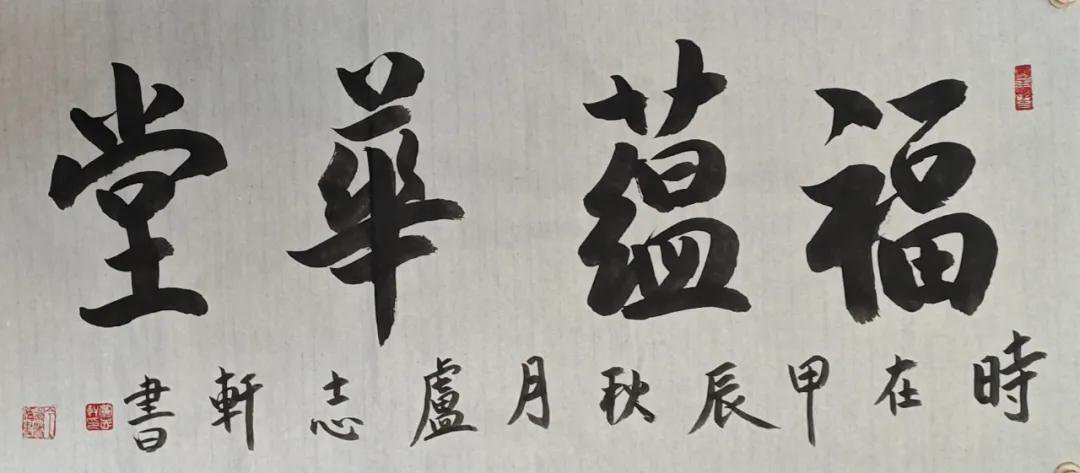 福蘊華堂
時在甲辰秋月盧志軒書